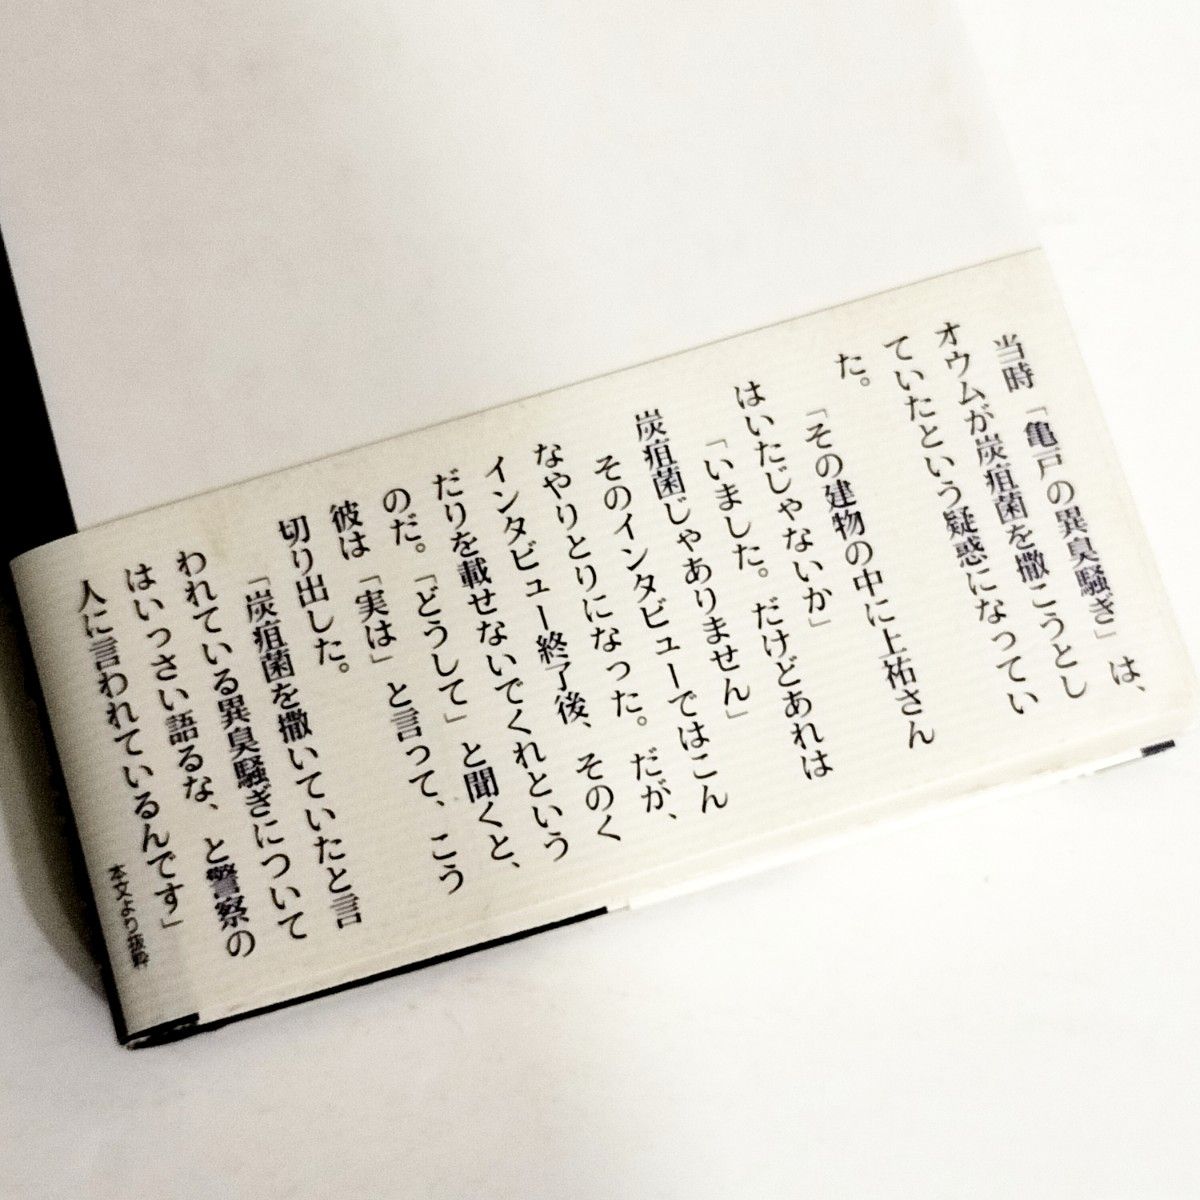 当時「亀戸の異臭騒ぎ」は、
オウムが炭疽菌を撒こうとし
ていたという疑惑になってい
た。
「その建物の中に上祐さん
はいたじゃないか」
「いました。だけどあれは
炭疽菌じゃありません」
そのインタビューではこん
なやりとりになった。だが、
インタビュー終了後、そのく
だりを載せないでくれという
のだ。「どうして」と聞くと、
彼は「実は」と言って、こう
切り出した。
「炭疽菌を撒いていたと言
われている異臭騒ぎについて
はいっさい語るな、と警察の
人に言われているんです」
本文より抜粋